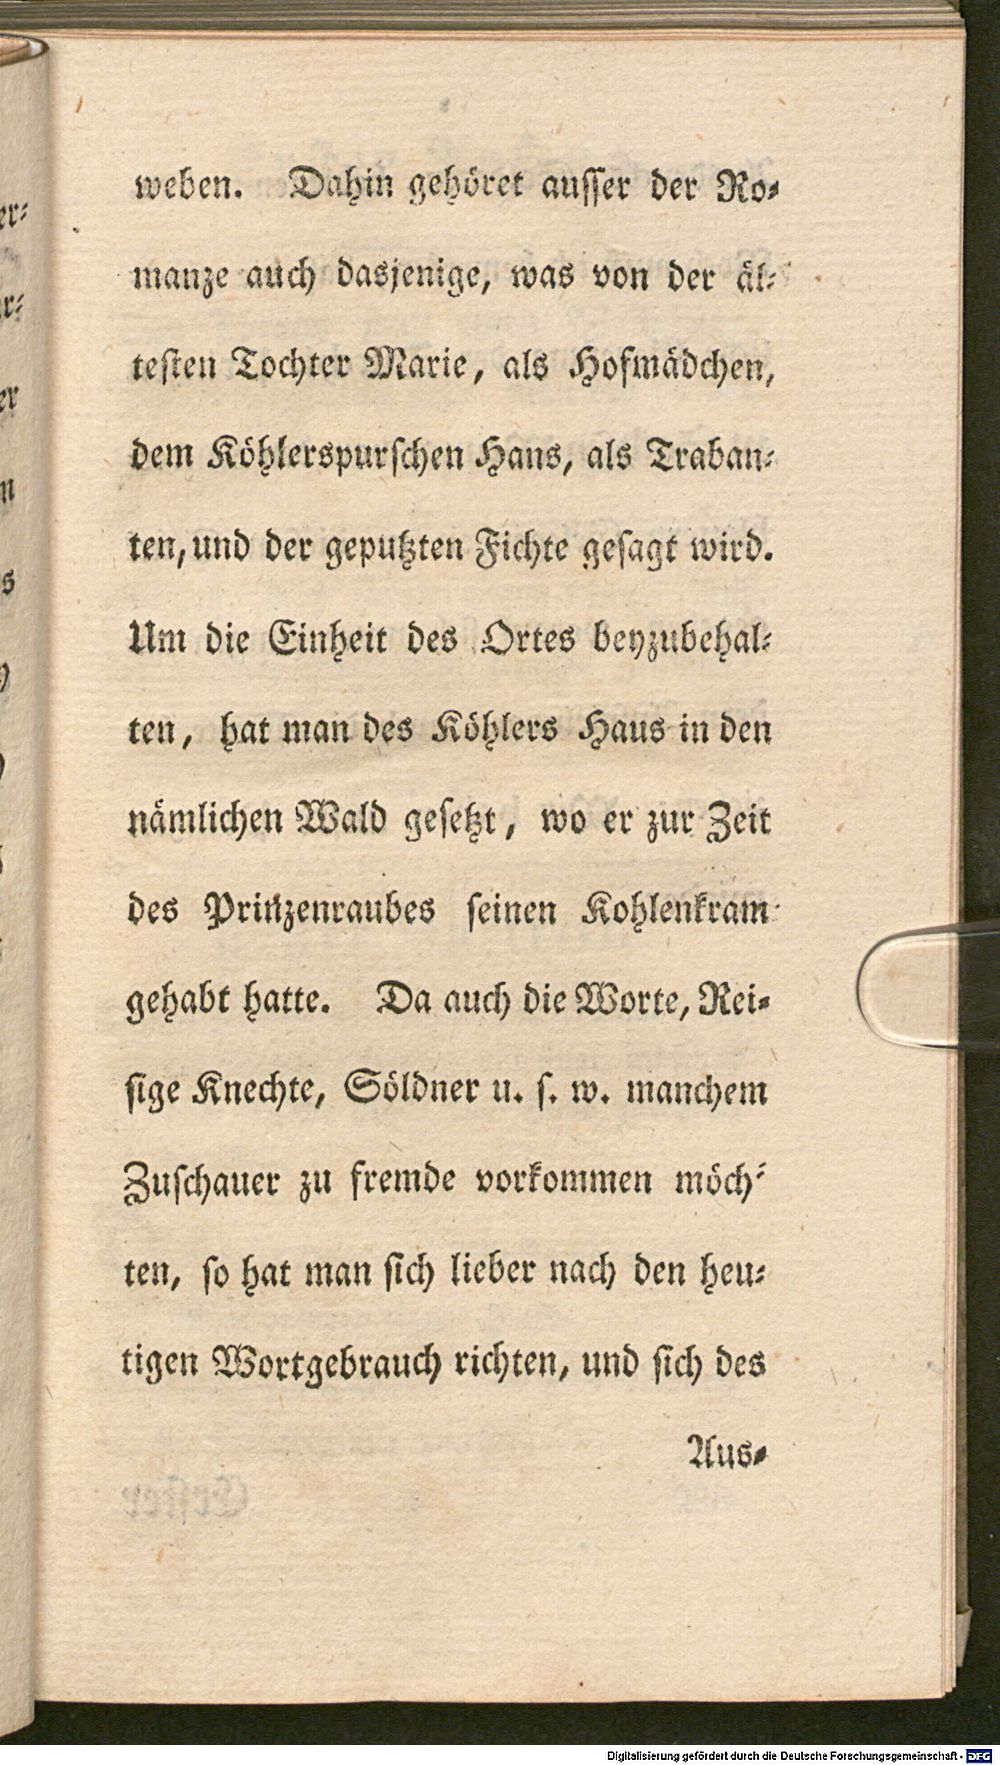 weben. Dahin gehöret ausser der Ro-
manze auch dasjenige, was von der äl-
testen Tochter Marie, als Hofmädchen,
dem Köhlerspurschen Hans, als Traban-
ten, und der geputzten Fichte gesagt wird.
Um die Einheit des Ortes beyzubehal-
ten, hat man des Köhlers Haus in den
nämlichen Wald gesetzt, wo er zur Zeit
des Prinzenraubes seinen Kohlenkram
gehabt hatte. Da auch die Worte, Rei-
sige Knechte, Söldner u. s. w. manchem
Zuschauer zu fremde vorkommen möch-
ten, so hat man sich lieber nach den heu-
tigen Wortgebrauch richten, und sich des
Aus-
Digitalisierung gefördert durch die Deutsche Forschungsgemeinschaft - DFG